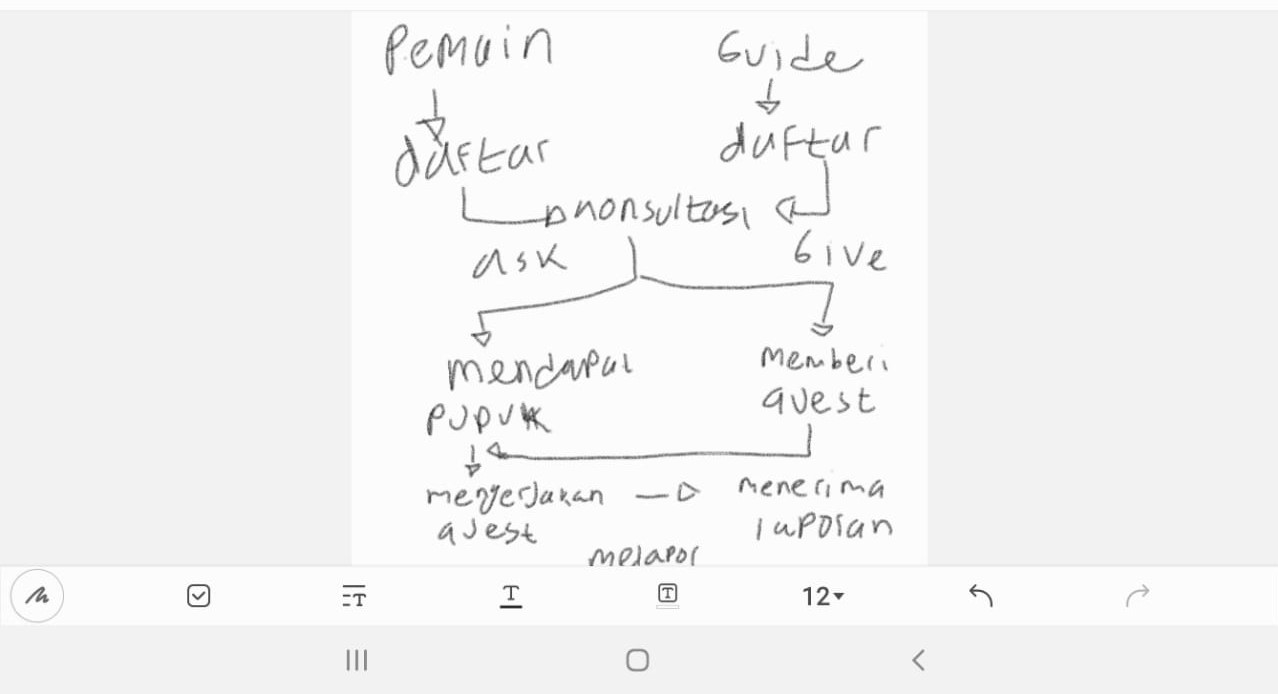 Pemain Guide
daftar daftar
nonsultasi
ask Give
mendapat memberi
pupuk quest
mengerjakan menerima
quest laporan
melapor
12